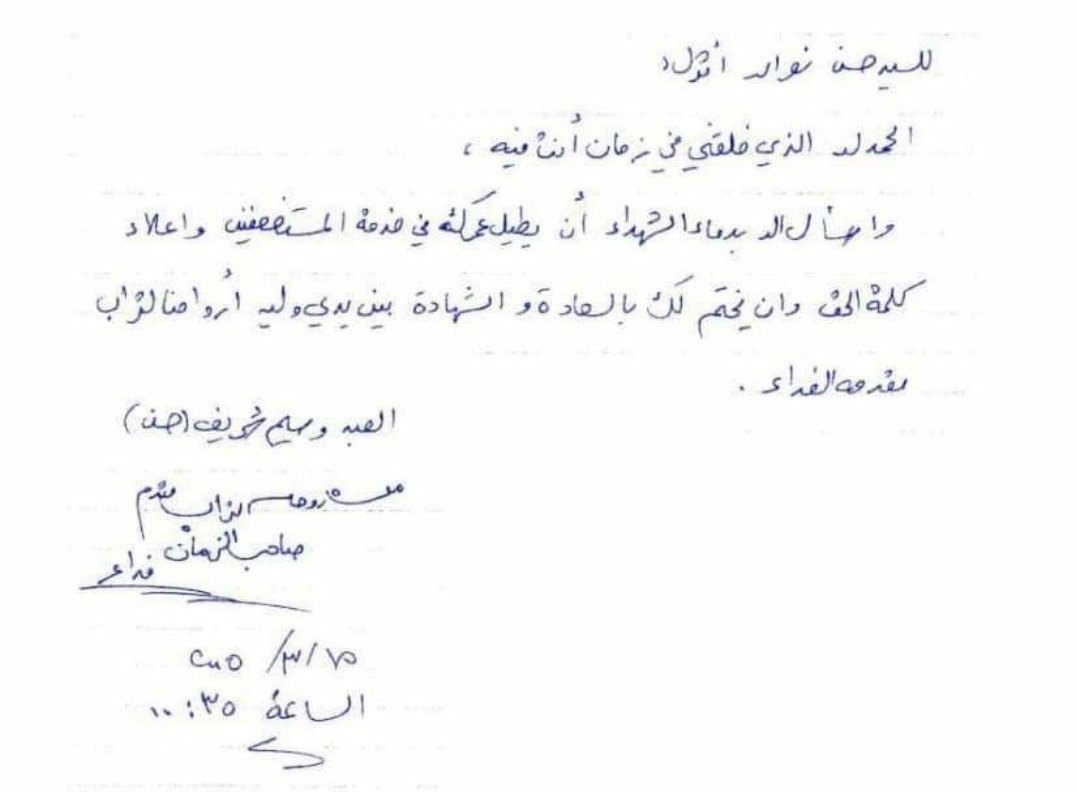 للسيد حسن نصرالله أقول:
الحمد لله الذي خلقني في زمان أنت فيه ،
واسأل الله بدماء الشهداء أن يطيل عمرك في خدمة المستضعفين واعلاء
كلمة الحق وان يختم لك بالسعادة و الشهادة بين يدي وليه أرواحنا لتراب
مقدمه الفداء .
العبد وسيم شريف (حسن)
روحي لتراب مقدم
صاحب الزمان
فداء
الساعة ١٠:٣٥